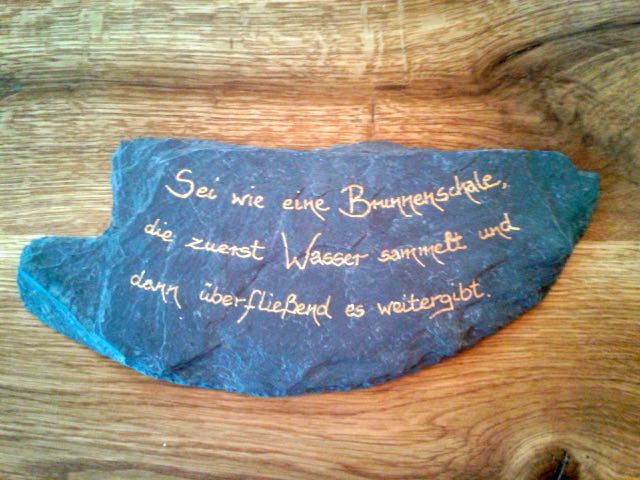 Sei wie eine Brunnenschale,
die zuerst Wasser sammelt und
dann überfließend es weitergibt.